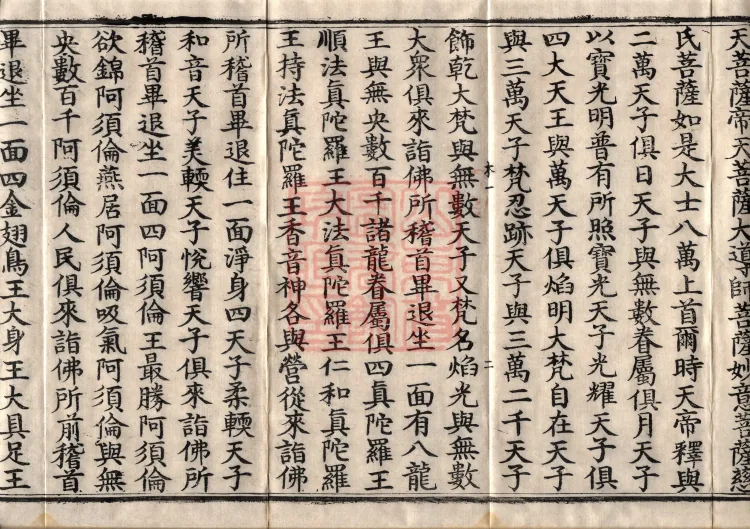 天菩薩帝天菩薩大導師菩薩妙意菩薩慈
氏菩薩如是大士八萬上首爾時天帝釋與
二萬天子俱日天子與無數眷屬俱月天子
以寶光明普有所照寶光天子光耀天子俱
四大天王與萬天子俱焰明大梵自在天子
與三萬天子梵忍跡天子與三萬二千天子
木一 二
飾乾大梵與無數天子又梵名焰光與無數
大衆俱來詣佛所稽首畢退坐一面有八龍
王與無央數百千諸龍眷屬俱四眞陀羅王
順法眞陀羅王大法眞陀羅王仁和眞陀羅
王持法眞陀羅王香音神各與營從來詣佛
所稽首畢退住一面淨身四天子柔輭天子
和音天子美輭天子悅響天子俱來詣佛所
稽首畢退坐一面四阿須倫王最勝阿須倫
欲錦阿須倫燕居阿須倫吸氣阿須倫與無
央數百千阿須倫人民俱來詣佛所前稽首
畢退坐一面四金翅鳥王大身王大具足王